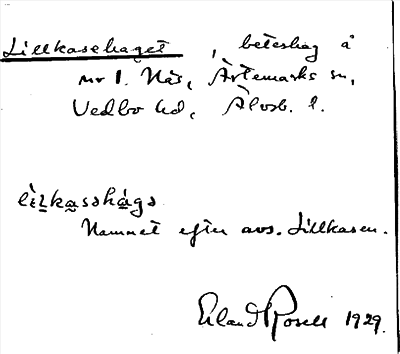 Lillkasehaget, beteshag å
nr 1. Näs, Ärtemarks sn,
Vedbo hd, Älvsb. l.
lìlkasshàgs
Namnet efter avs. Lillkasen.
Erland Rosell 1929.